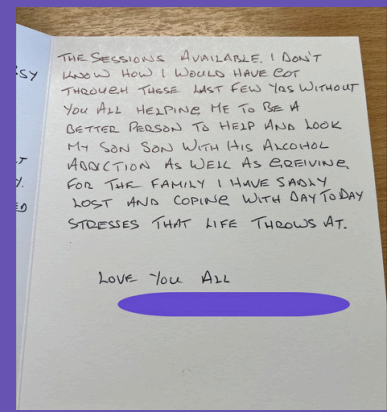 THE SESSIONS AVAILABLE. I DON'T
KNOW HOW I WOULD HAVE GOT
THROUGH THESE LAST FEW YRS WITHOUT
YOU ALL HELPING ME TO BE A
BETTER PERSON TO HELP AND LOOK
MY SON SON WITH HIS ALCOHOL
ADDICTION AS WELL AS GREIVING
FOR THE FAMILY I HAVE SADLY
LOST AND COPING WITH DAY TO DAY
STRESSES THAT LIFE THROWS AT.
LOVE YOU ALL